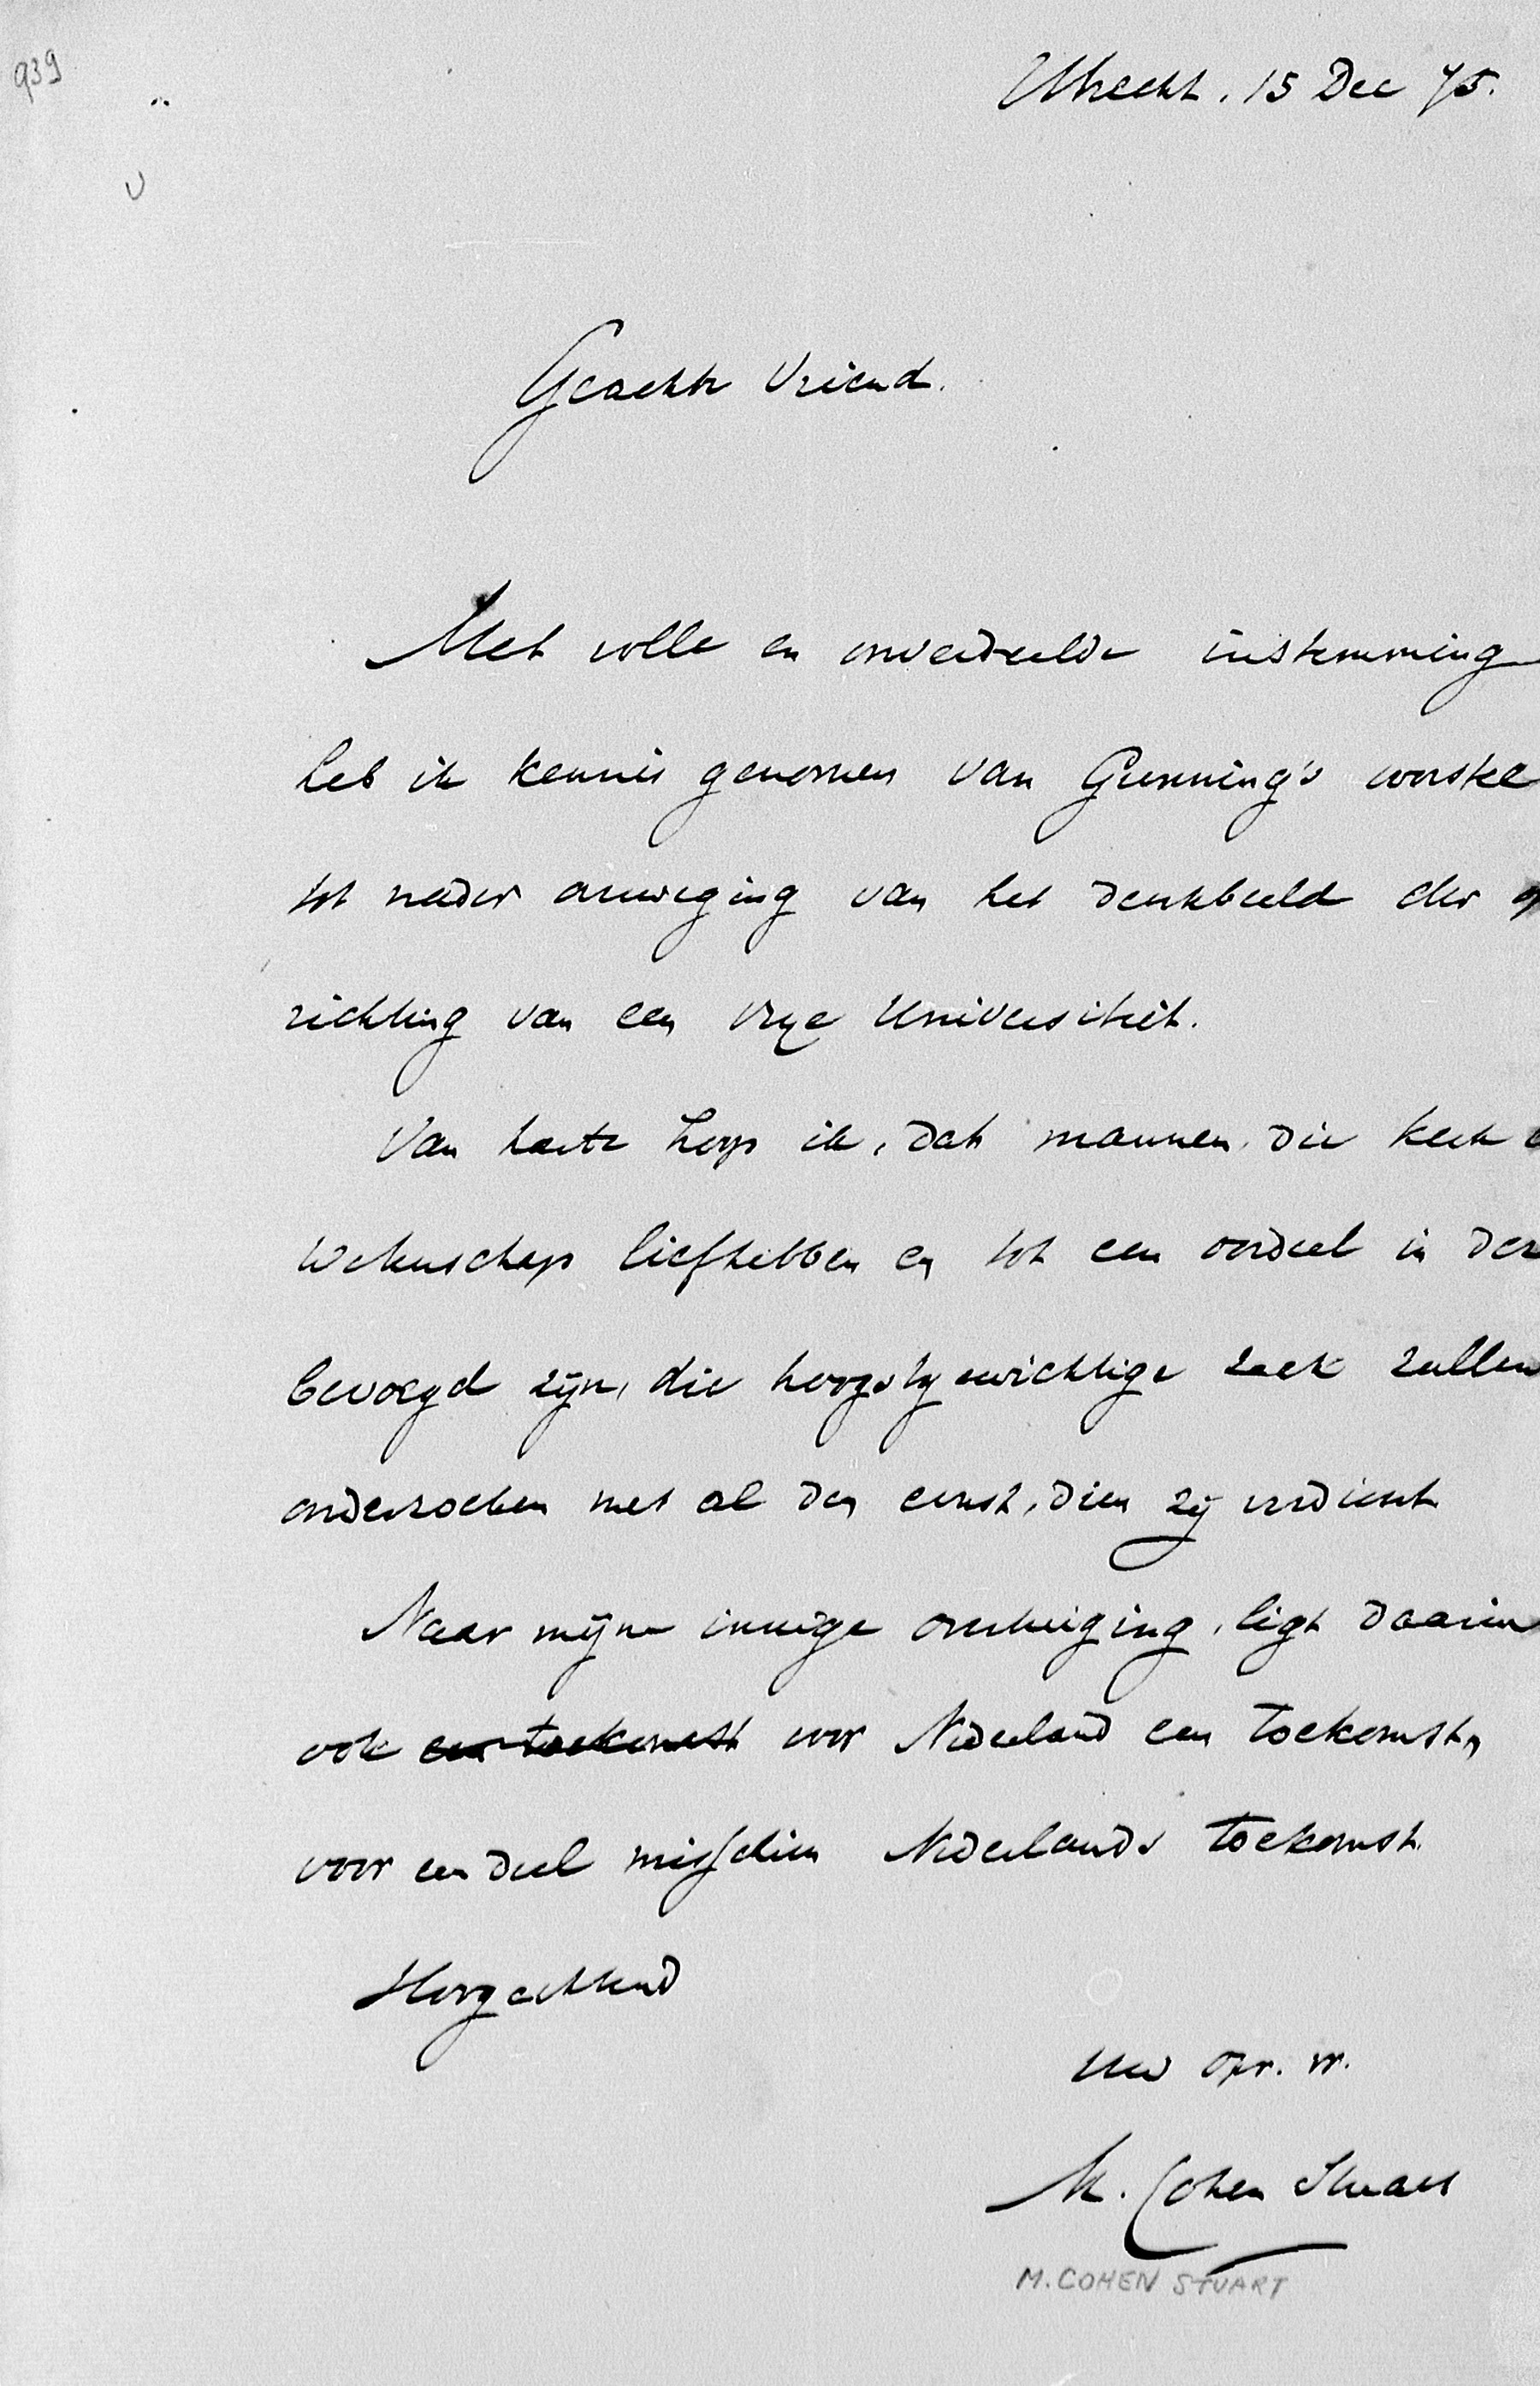 939
Utrecht, 15 Dec 75.
Geachte Vriend.
Met volle en onverdeelde instemming
heb ik kennis genomen van Gunning's voorstel
tot nader overweging van het denkbeeld der op
richting van een vrije Universiteit.
Van harte hoop ik, dat mannen, die kerk e
wetenschap liefhebben en tot een oordeel in dez
bevoegd zijn, die hoogstgewichtige zaak zullen
onderzoeken met al den ernst, dien zij verdient
Naar mijne innige overtuiging, ligt daarin
ook een toekomst voor Nederland een toekomst,
voor een deel misschien Nederlands toekomst.
Hoogachtend
Uw opr. vr.
M. Cohen Stuart
M. COHEN STUART